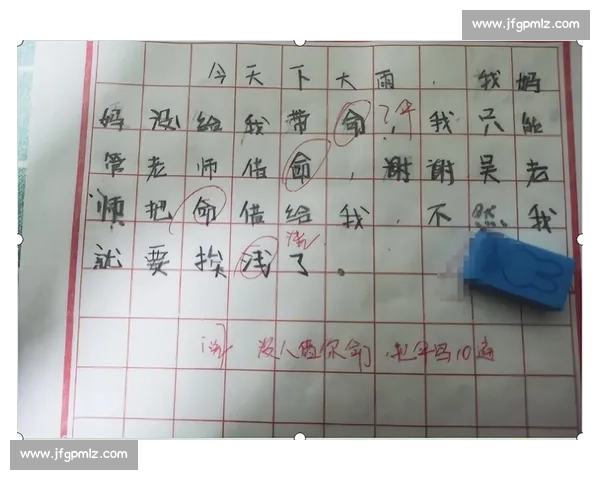 www.jfgpmlz.com
今天下大雨，我妈
妈没给我带命，我只能
伞
管老师借命，谢谢吴老
师把命借给我，不然我
就要挨浅了。
没人借你命，把伞写10遍
www.jfgpmlz.com